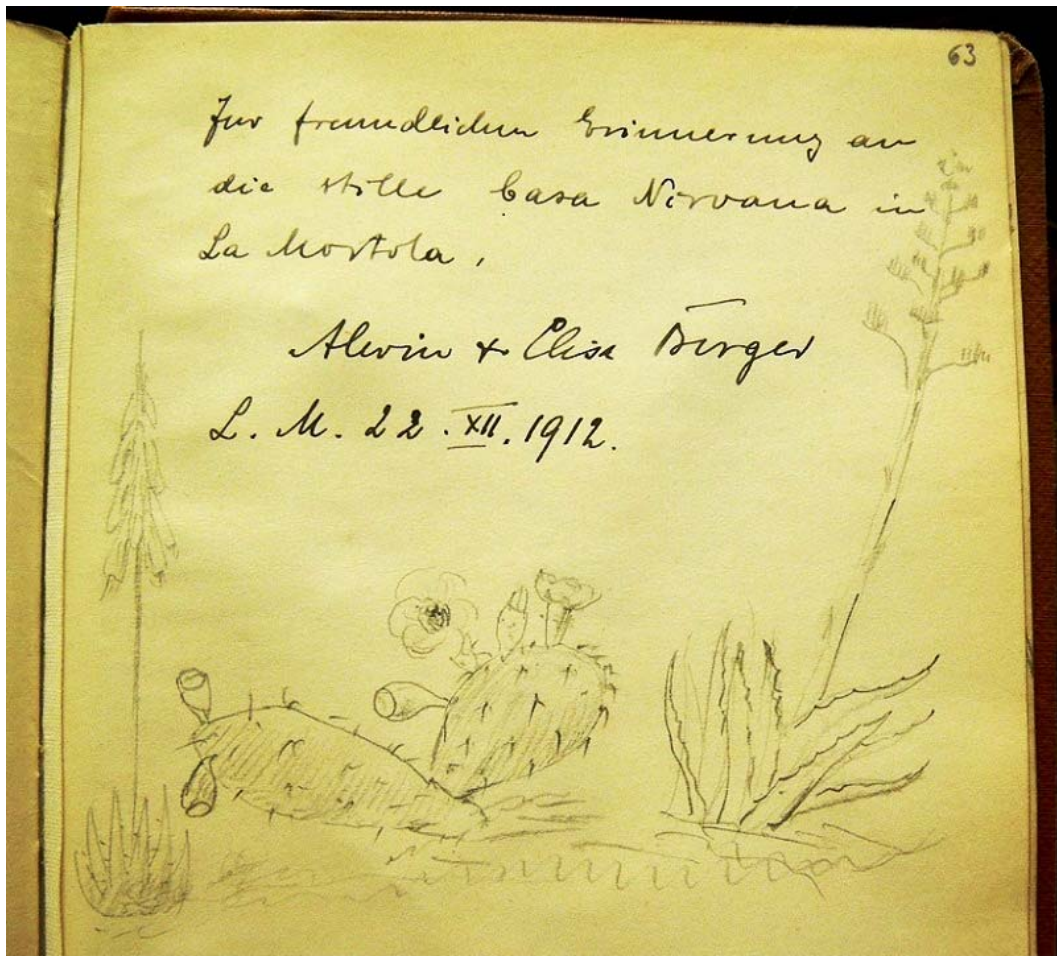 63
Zur freundlichen Erinnerung an
die stille Casa Nirvana in
La Mortola.
Alwin & Elise Berger
L. M. 22. XII. 1912.